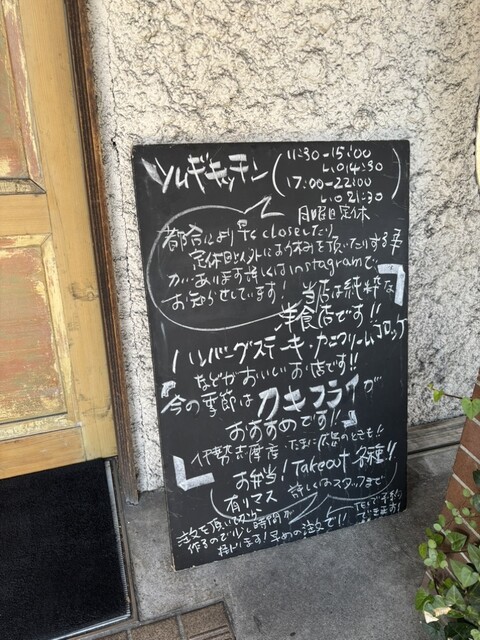 ツムギキッチン
11:30-15:00
L.O 14:30
17:00-22:00
L.O 21:30
月曜日定休
都合により早くcloseしたり
定休日以外にお休みを頂いたりする事
があります詳しくはinstagramで
お知らせしています!
当店は純粋な
洋食店です!!
ハンバーグステーキ・カニクリームコロッケ
などがおいしいお店です!!
今の季節はカキフライが
おすすめです!!
伊勢志摩産 たまに広島のときも!!
お弁当!Takeout各種!!
有リマス
詳しくはスタッフまで
注文を頂いてから
作るので少し時間が
掛ります!早めの注文で!!
TELで予約
できます!